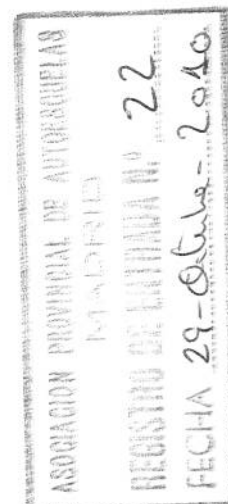 ASOCIACION PROVINCIAL DE AUTOESCUELAS
MADRID
REGISTRO DE ENTRADA N.º 22
FECHA 29-Octubre-2010